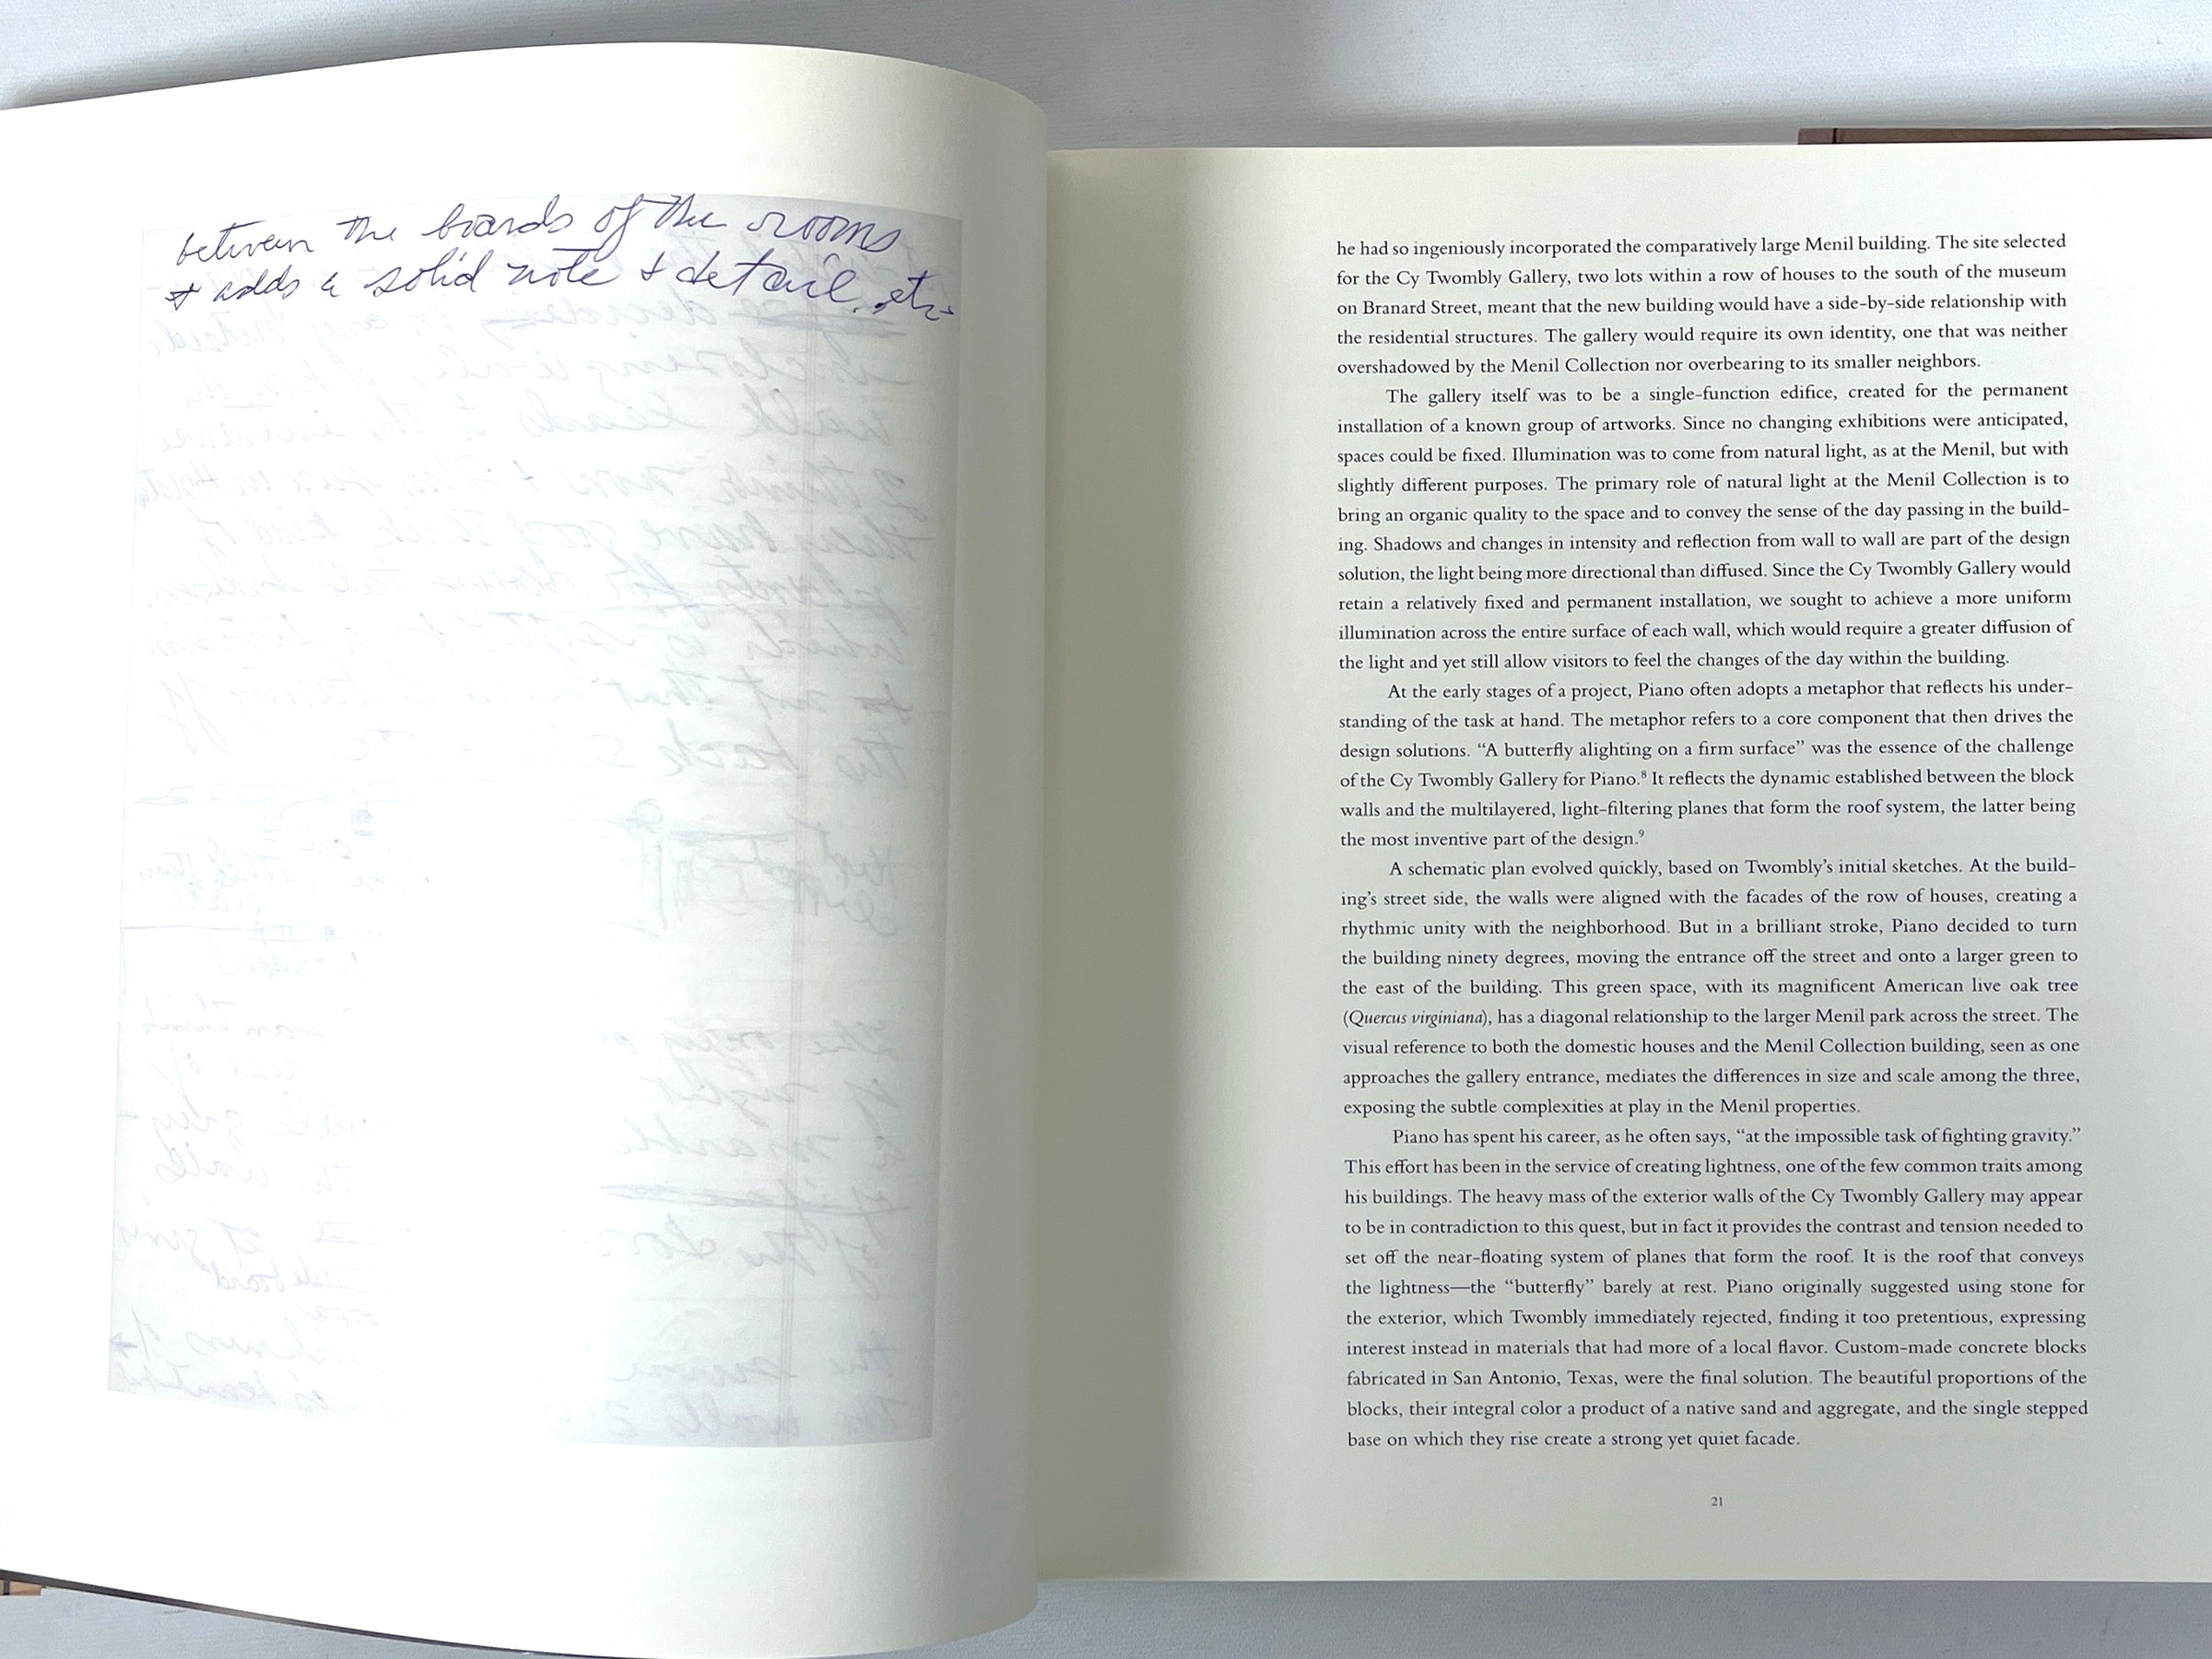 between the boards of the rooms
+ adds a solid note + detail, etc
he had so ingeniously incorporated the comparatively large Menil building. The site selected
for the Cy Twombly Gallery, two lots within a row of houses to the south of the museum
on Branard Street, meant that the new building would have a side-by-side relationship with
the residential structures. The gallery would require its own identity, one that was neither
overshadowed by the Menil Collection nor overbearing to its smaller neighbors.
The gallery itself was to be a single-function edifice, created for the permanent
installation of a known group of artworks. Since no changing exhibitions were anticipated,
spaces could be fixed. Illumination was to come from natural light, as at the Menil, but with
slightly different purposes. The primary role of natural light at the Menil Collection is to
bring an organic quality to the space and to convey the sense of the day passing in the build-
ing. Shadows and changes in intensity and reflection from wall to wall are part of the design
solution, the light being more directional than diffused. Since the Cy Twombly Gallery would
retain a relatively fixed and permanent installation, we sought to achieve a more uniform
illumination across the entire surface of each wall, which would require a greater diffusion of
the light and yet still allow visitors to feel the changes of the day within the building.
At the early stages of a project, Piano often adopts a metaphor that reflects his under-
standing of the task at hand. The metaphor refers to a core component that then drives the
design solutions. “A butterfly alighting on a firm surface” was the essence of the challenge
of the Cy Twombly Gallery for Piano.⁸ It reflects the dynamic established between the block
walls and the multilayered, light-filtering planes that form the roof system, the latter being
the most inventive part of the design.⁹
A schematic plan evolved quickly, based on Twombly’s initial sketches. At the build-
ing’s street side, the walls were aligned with the facades of the row of houses, creating a
rhythmic unity with the neighborhood. But in a brilliant stroke, Piano decided to turn
the building ninety degrees, moving the entrance off the street and onto a larger green to
the east of the building. This green space, with its magnificent American live oak tree
(Quercus virginiana), has a diagonal relationship to the larger Menil park across the street. The
visual reference to both the domestic houses and the Menil Collection building, seen as one
approaches the gallery entrance, mediates the differences in size and scale among the three,
exposing the subtle complexities at play in the Menil properties.
Piano has spent his career, as he often says, “at the impossible task of fighting gravity.”
This effort has been in the service of creating lightness, one of the few common traits among
his buildings. The heavy mass of the exterior walls of the Cy Twombly Gallery may appear
to be in contradiction to this quest, but in fact it provides the contrast and tension needed to
set off the near-floating system of planes that form the roof. It is the roof that conveys
the lightness—the “butterfly” barely at rest. Piano originally suggested using stone for
the exterior, which Twombly immediately rejected, finding it too pretentious, expressing
interest instead in materials that had more of a local flavor. Custom-made concrete blocks
fabricated in San Antonio, Texas, were the final solution. The beautiful proportions of the
blocks, their integral color a product of a native sand and aggregate, and the single stepped
base on which they rise create a strong yet quiet facade.
21